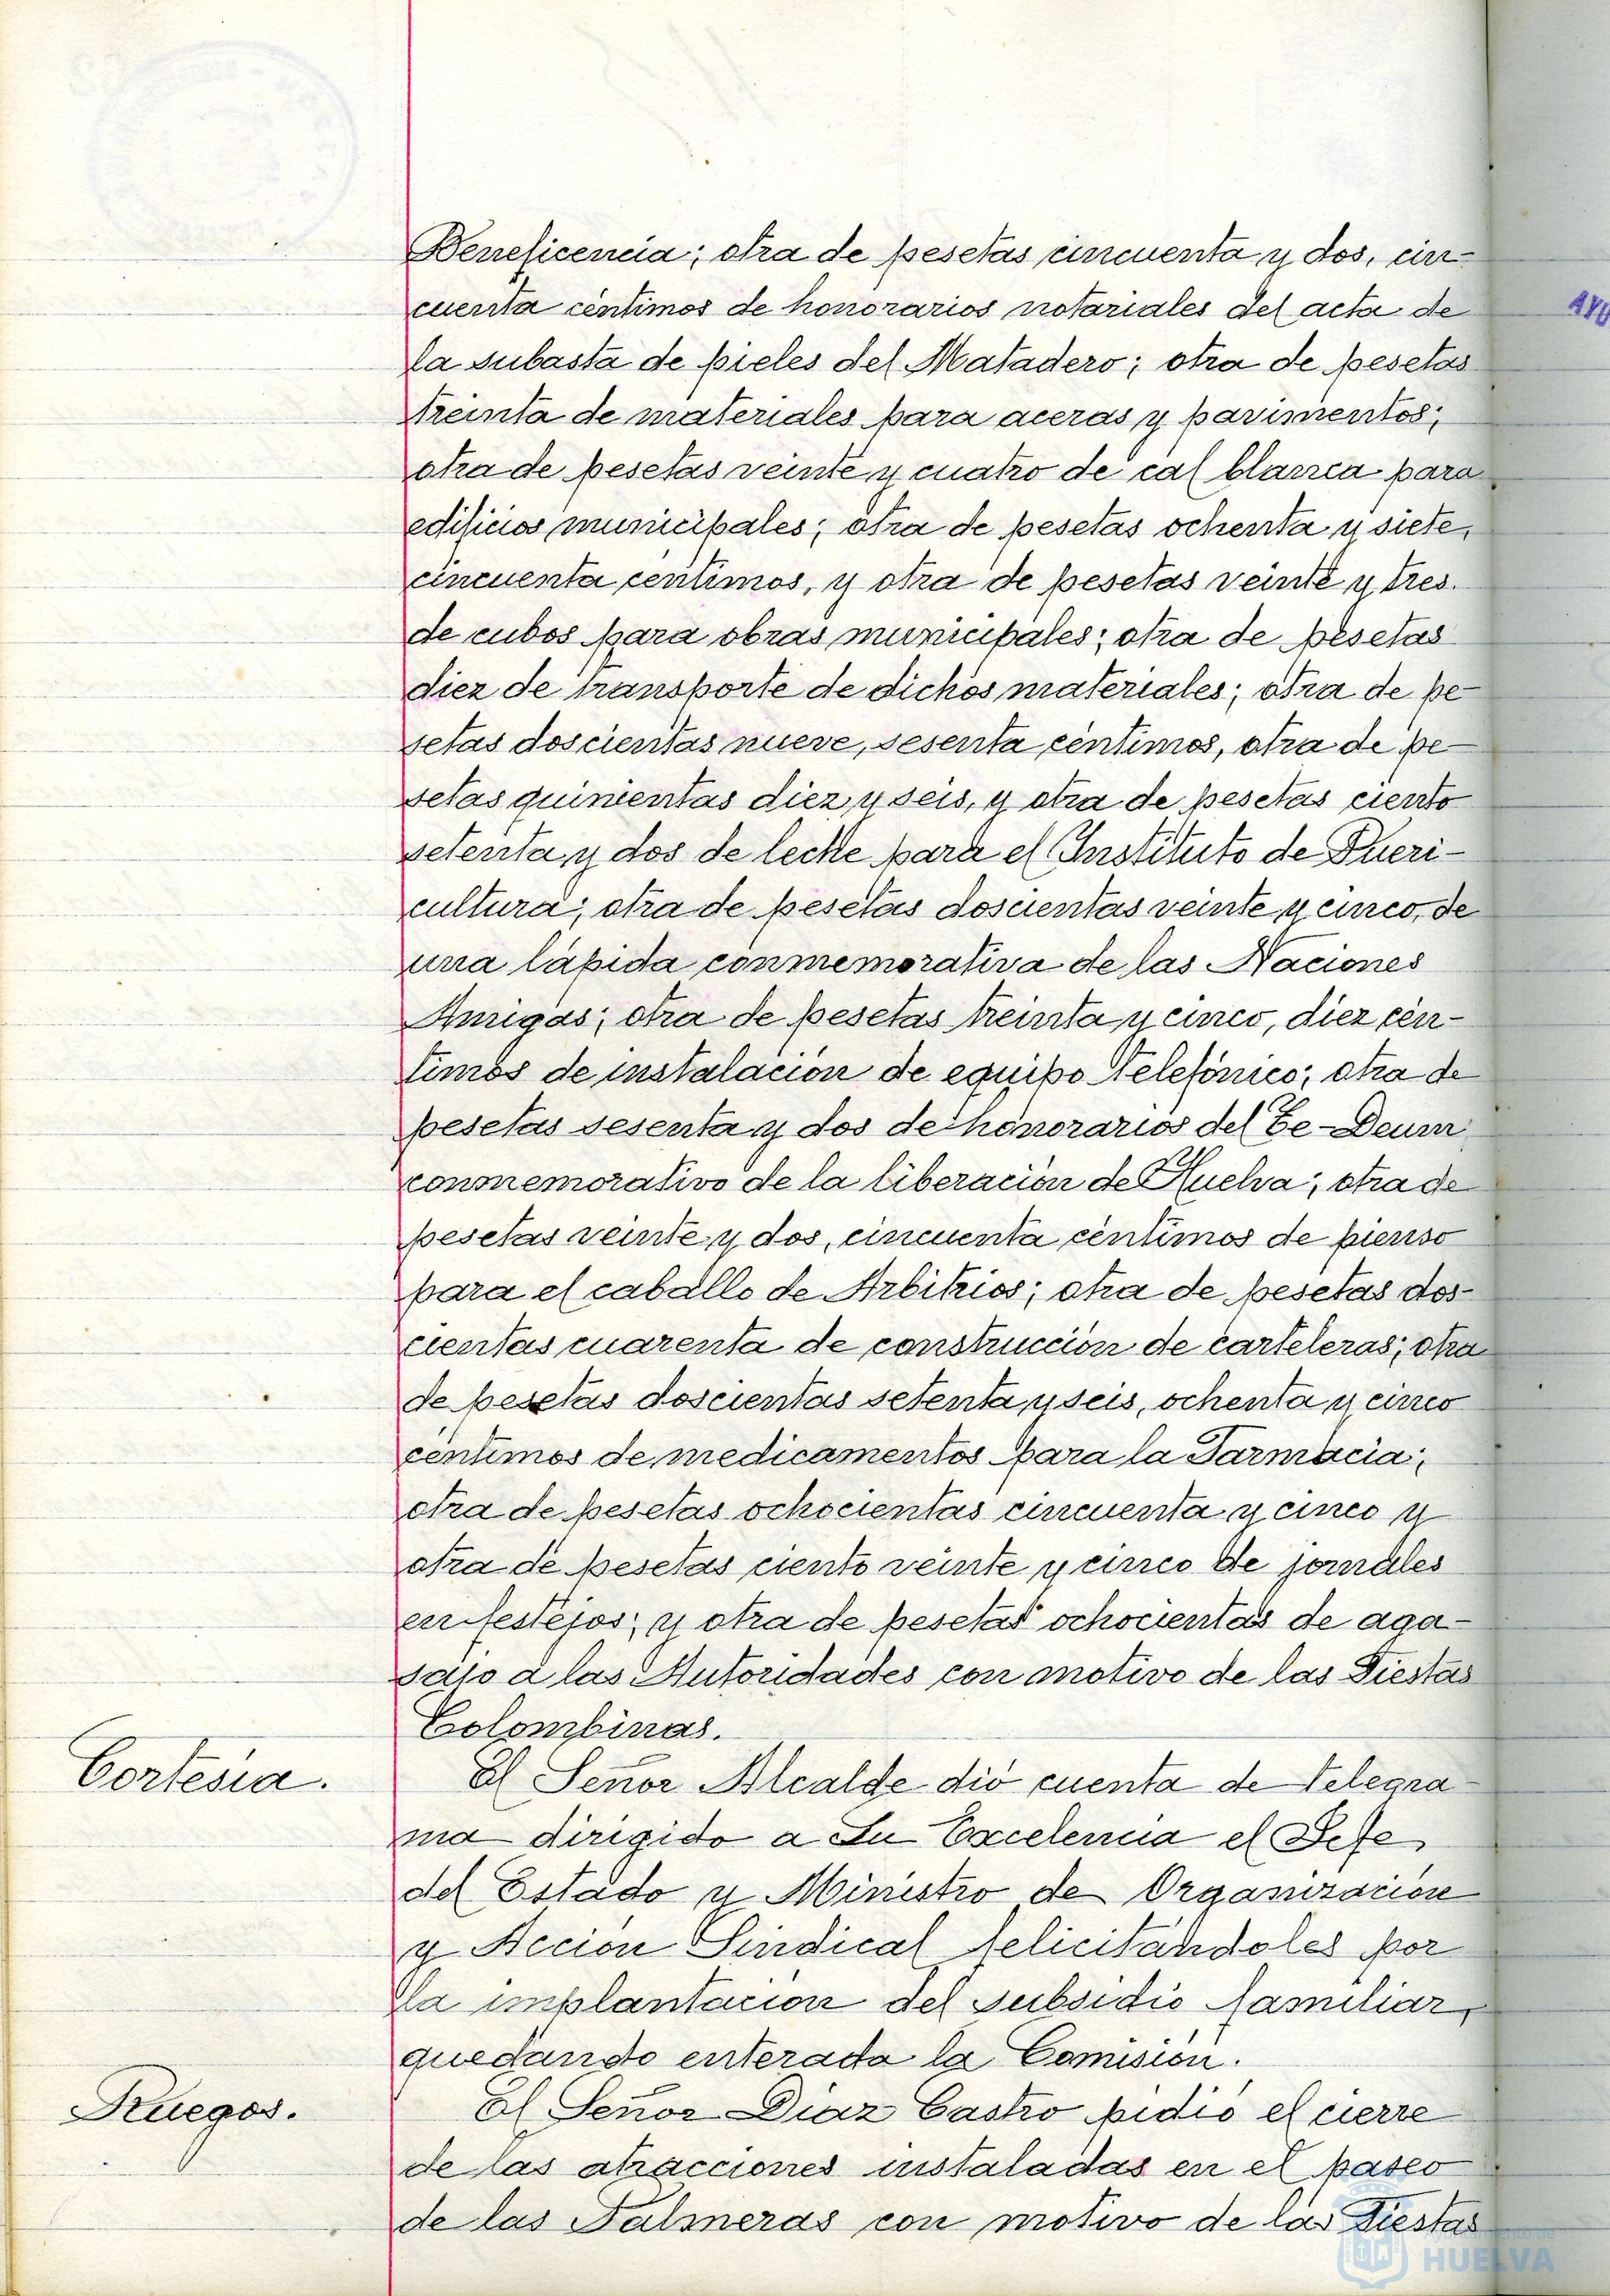 Beneficencia; otra de pesetas cincuenta y dos, cin-
cuenta céntimos de honorarios notariales del acta de
la subasta de pieles del Matadero; otra de pesetas
treinta de materiales para aceras y pavimentos;
otra de pesetas veinte y cuatro de cal blanca para
edificios municipales; otra de pesetas ochenta y siete,
cincuenta céntimos, y otra de pesetas veinte y tres
de cubos para obras municipales; otra de pesetas
diez de transporte de dichos materiales; otra de pe-
setas doscientas nueve, sesenta céntimos, otra de pe-
setas quinientas diez y seis, y otra de pesetas ciento
setenta y dos de leche para el Instituto de Pueri-
cultura; otra de pesetas doscientas veinte y cinco, de
una lápida conmemorativa de las Naciones
Amigas; otra de pesetas treinta y cinco, diez cén-
timos de instalación de equipo telefónico; otra de
pesetas sesenta y dos de honorarios del Te-Deum
conmemorativo de la liberación de Huelva; otra de
pesetas veinte y dos, cincuenta céntimos de pienso
para el caballo de Arbitrios; otra de pesetas dos-
cientas cuarenta de construcción de carteleras; otra
de pesetas doscientas setenta y seis, ochenta y cinco
céntimos de medicamentos para la Farmacia;
otra de pesetas ochocientas cincuenta y cinco y
otra de pesetas ciento veinte y cinco de jornales
en festejos; y otra de pesetas ochocientas de aga-
sajo a las Autoridades con motivo de las Fiestas
Colombinas.
Cortesía. El Señor Alcalde dió cuenta de telegra-
ma dirigido a Su Excelencia el Jefe
del Estado y Ministro de Organización
y Acción Sindical felicitándoles por
la implantación del subsidio familiar,
quedando enterada la Comisión.
Ruegos. El Señor Díaz Castro pidió el cierre
de las atracciones instaladas en el paseo
de las Palmeras con motivo de las Fiestas
AYU
HUELVA